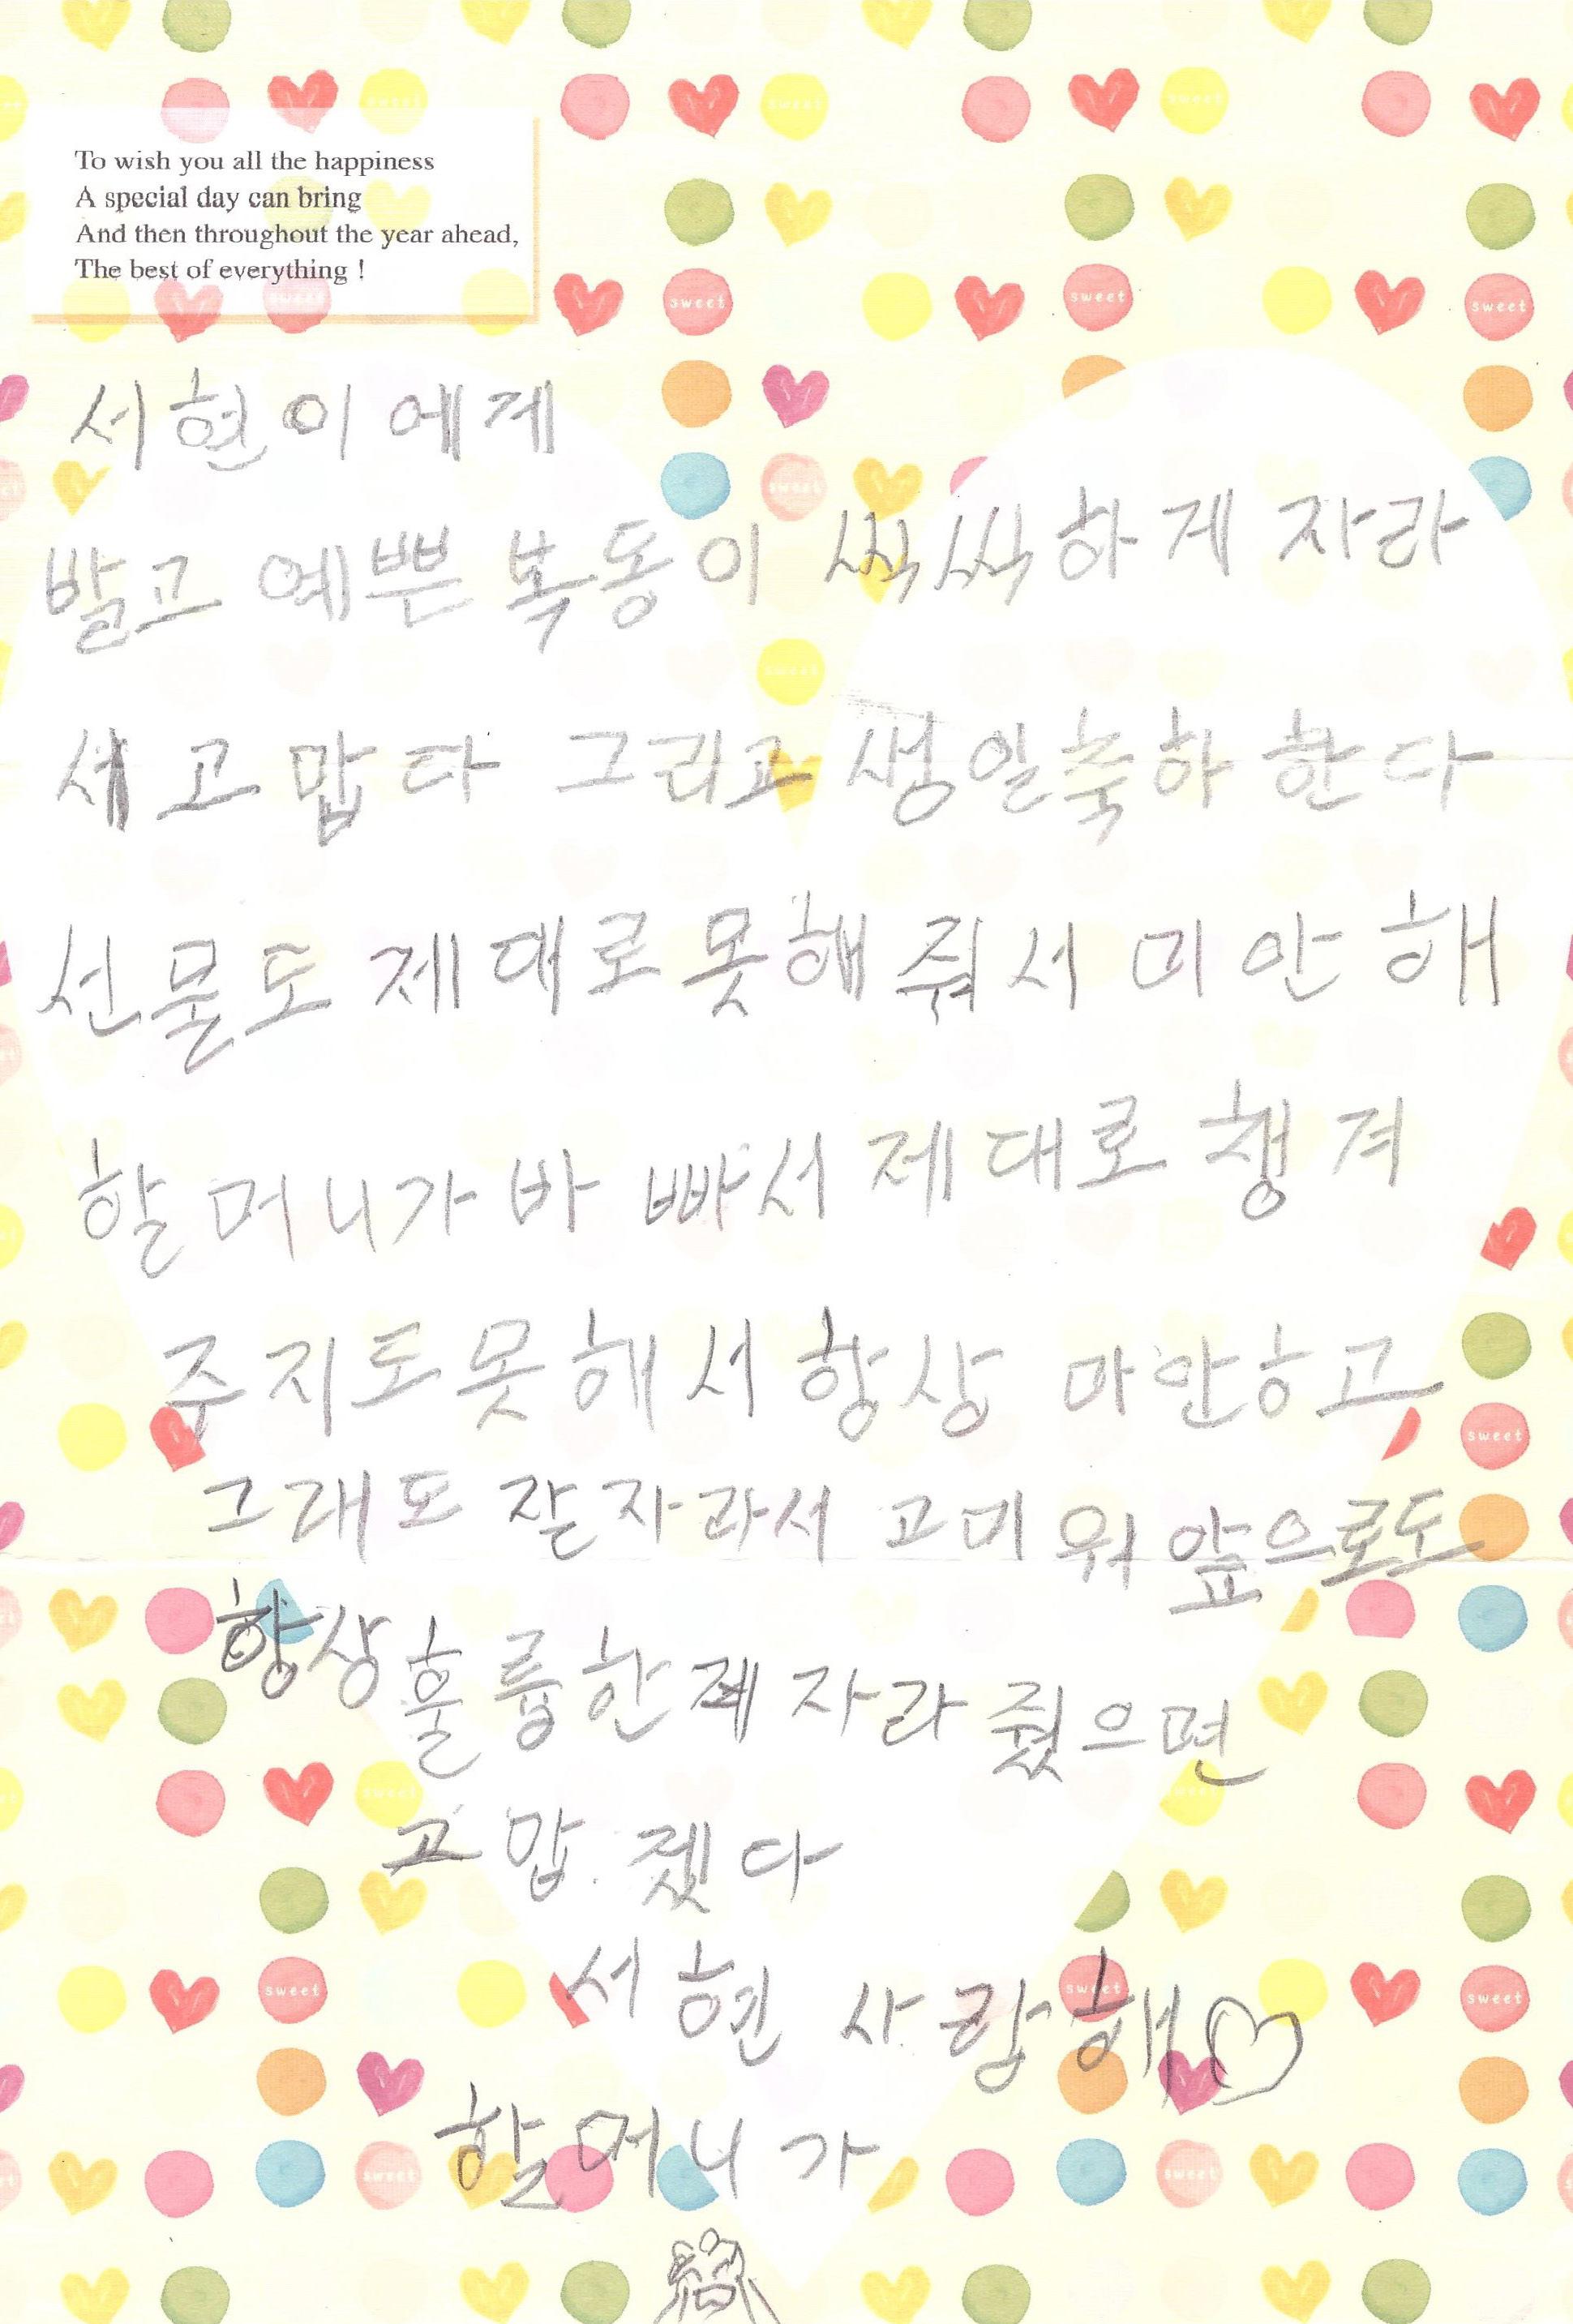 To wish you all the happiness
A special day can bring
And then throughout the year ahead,
The best of everything !
서현이에게
발고 예쁜 복동이 씩씩하게 자라
서 고맙다 그리고 생일축하 한다
선물도 제대로 못해 줘서 미안해
할머니가 바빠서 제대로 챙겨
주지도 못해서 항상 마안하고
그래도 잘 자라서 고미워 앞으로도
항상 훌륭한게 자라 줬으면
고맙겠다
서현 사랑해♡
할머니가